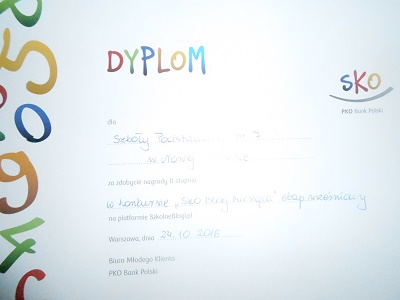 DYPLOM
SKO
PKO Bank Polski
dla
Szkoły Podstawowej nr 7
w
za zdobycie nagrody II stopnia
w konkursie „SKO Blog miesiąca” etap wrześniowy
na platformie SzkolneBlogi.pl
Warszawa, dnia 24.10.2016
Biuro Młodego Klienta
PKO Bank Polski